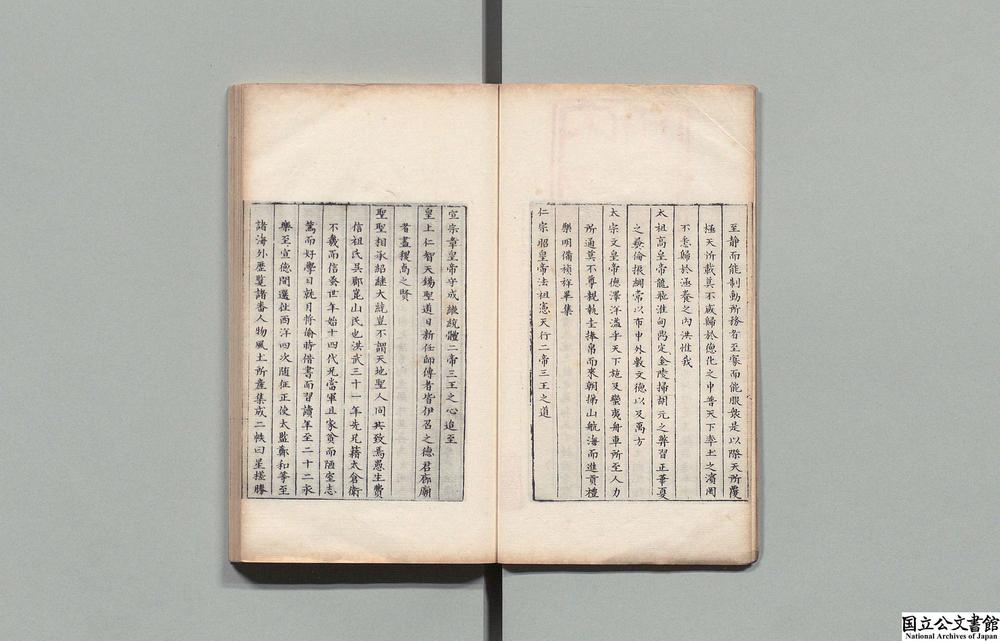 至静而能制動所務者至寡而能服衆是以際天所覆
極天所載莫不咸歸於德化之中普天下率土之濱罔
不悉歸於涵養之內洪惟我
太祖高皇帝龍飛淮甸鼎定金陵掃胡元之弊習正華夏
之彜倫振綱常以布中外敷文德以及萬方
太宗文皇帝德澤洋溢乎天下施及蠻夷舟車所至人力
所通莫不尊親執圭捧帛而來朝梯山航海而進貢禮
樂明備禎祥畢集
仁宗昭皇帝法祖憲天行二帝三王之道
宣宗章皇帝守成繼統體二帝三王之心迨至
皇上仁智天錫聖道日新任師傅者皆伊召之德君廊廟
者盡稷禼之賢
聖聖相承紹繼大統豈不謂天地聖人同其致焉愚生費
信祖氏吳郡崑山民也洪武三十一年先兄籍太倉衛
不幾而信蚤世年始十四代兄當軍且家貧而陋室志
篤而好學日就月將偷時借書而習讀年至二十二永
樂至宣德間選往西洋四次隨征正使太監鄭和等至
諸海外歷覽諸番人物風土所產集成二帙曰星槎勝
国立公文書館
National Archives of Japan